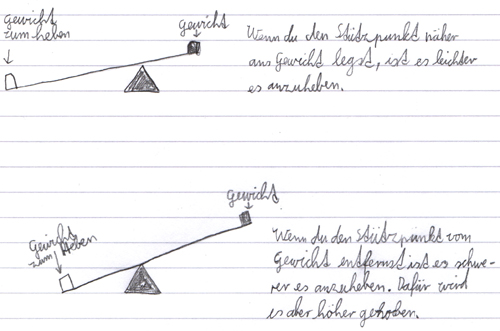 Gewicht
zum heben
Gewicht
Wenn du den Stützpunkt näher
ans Gewicht legst, ist es leichter
es anzuheben.
Gewicht
Gewicht
zum Heben
Wenn du den Stützpunkt vom
Gewicht entfernst ist es schwe-
rer es anzuheben. Dafür wird
es aber höher gehoben.